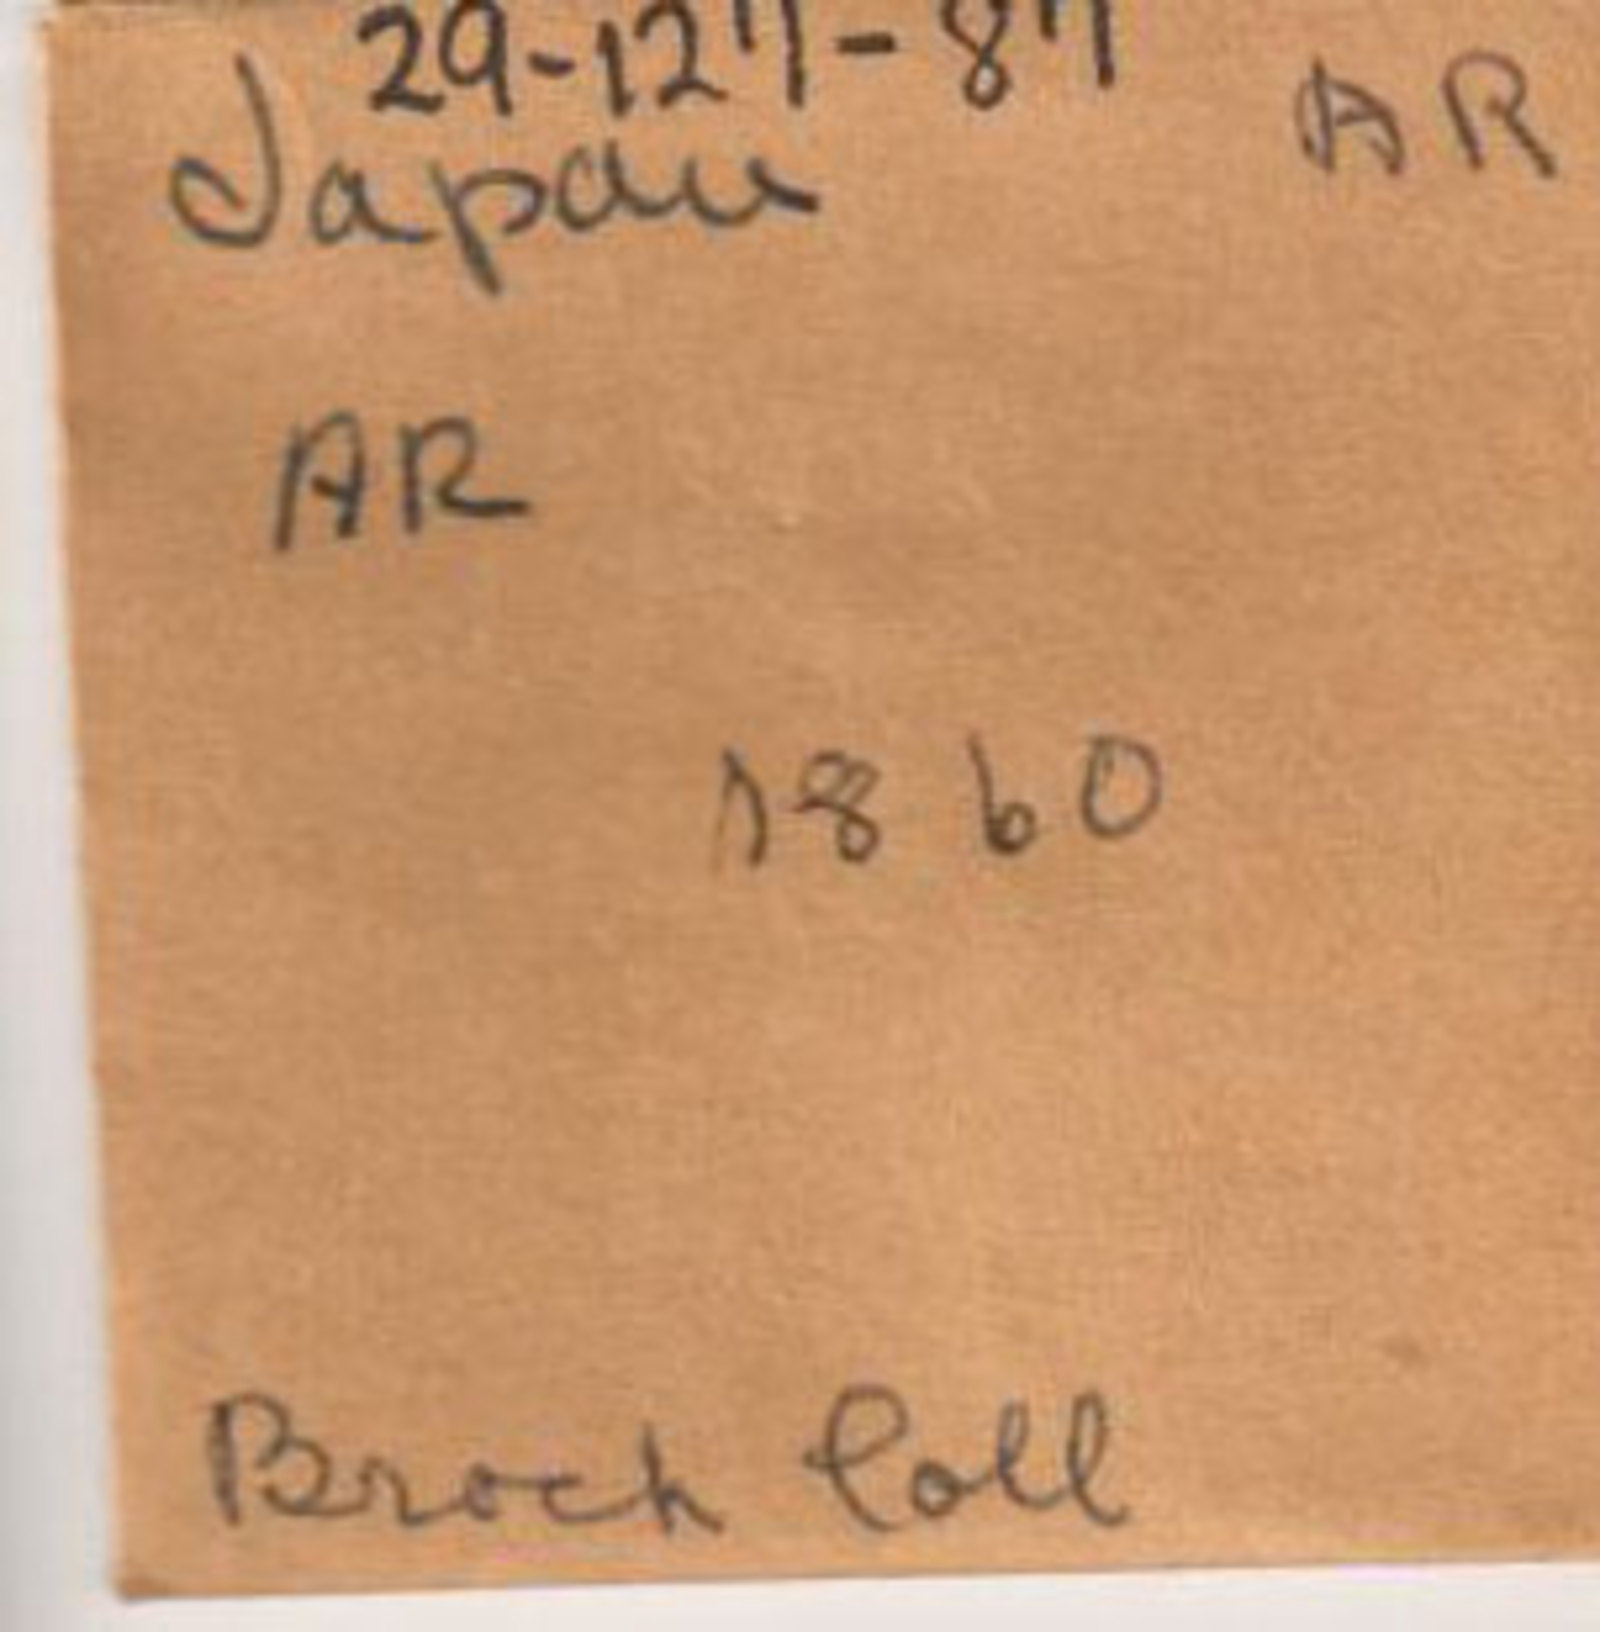 29-127-87
Japan AR
AR
1860
Brock Coll